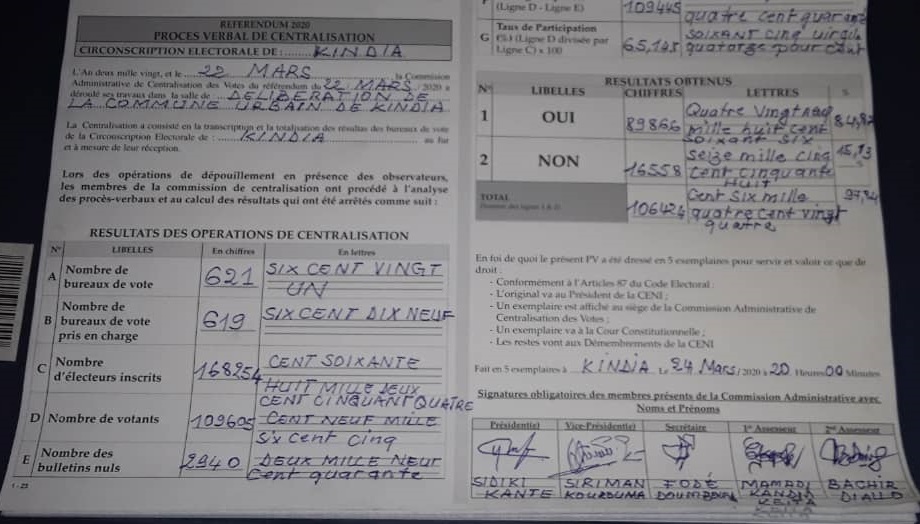 REFERENDUM 2020
PROCES VERBAL DE CENTRALISATION
CIRCONSCRIPTION ELECTORALE DE : KINDIA
L'An deux mille vingt, et le 22 MARS la Commission
Administrative de Centralisation des Votes du référendum du 22 MARS / 2020 a
déroulé ses travaux dans la salle de DELIBERATION DE
LA COMMUNE URBAIN DE KINDIA
La Centralisation a consisté en la transcription et la totalisation des résultas des bureaux de vote
de la Circonscription Electorale de : KINDIA au fur
et à mesure de leur réception.
Lors des opérations de dépouillement en présence des observateurs,
les membres de la commission de centralisation ont procédé à l'analyse
des procès-verbaux et au calcul des résultats qui ont été arrêtés comme suit :
RESULTATS DES OPERATIONS DE CENTRALISATION
N° LIBELLES En chiffres En lettres
A Nombre de bureaux de vote 621 SIX CENT VINGT
UN
B Nombre de bureaux de vote pris en charge 619 SIX CENT DIX NEUF
C Nombre d'électeurs inscrits 168254 CENT SOIXANTE
HUIT MILLE DEUX
CENT CINQUANT QUATRE
D Nombre de votants 109605 CENT NEUF MILLE
Six cent cinq
E Nombre des bulletins nuls 2940 DEUX MILLE NEUF
Cent quarante
1 - 25
(Ligne D - Ligne E) 109445 quatre cent quarant
G Taux de Participation
(%) (Ligne D divisée par
Ligne C) x 100 65,145 SOIXANT Cinq virgile
quatorze pour cent
RESULTATS OBTENUS
N° LIBELLES CHIFFRES LETTRES %
1 OUI 89866 Quatre Vingt neuf
mille huit cent
soixant six 84,82
2 NON 16558 Seize mille cinq
cent cinquante
HUIT 15,13
TOTAL 106424 Cent Six mille
quatre cent vingt
quatre
En foi de quoi le présent PV a été dressé en 5 exemplaires pour servir et valoir ce que de
droit :
- Conformément à l'Articles 87 du Code Electoral :
- L'original va au Président de la CENI ;
- Un exemplaire est affiché au siège de la Commission Administrative de
Centralisation des Votes ;
- Un exemplaire va à la Cour Constitutionnelle ;
- Les restes vont aux Démembrements de la CENI
Fait en 5 exemplaires à KINDIA Le 24 Mars / 2020 à 20 Heures 00 Minutes
Signatures obligatoires des membres présents de la Commission Administrative avec
Noms et Prénoms
Président(e) Vice-Président(e) Secrétaire 1er Assesseur 2ème Assesseur
SIDIKI SIRIMAN FODÉ MAMADI BACHIR
KANTE KOUROUMA DOUMBOUYA KANDIA DIALLO
KEITA